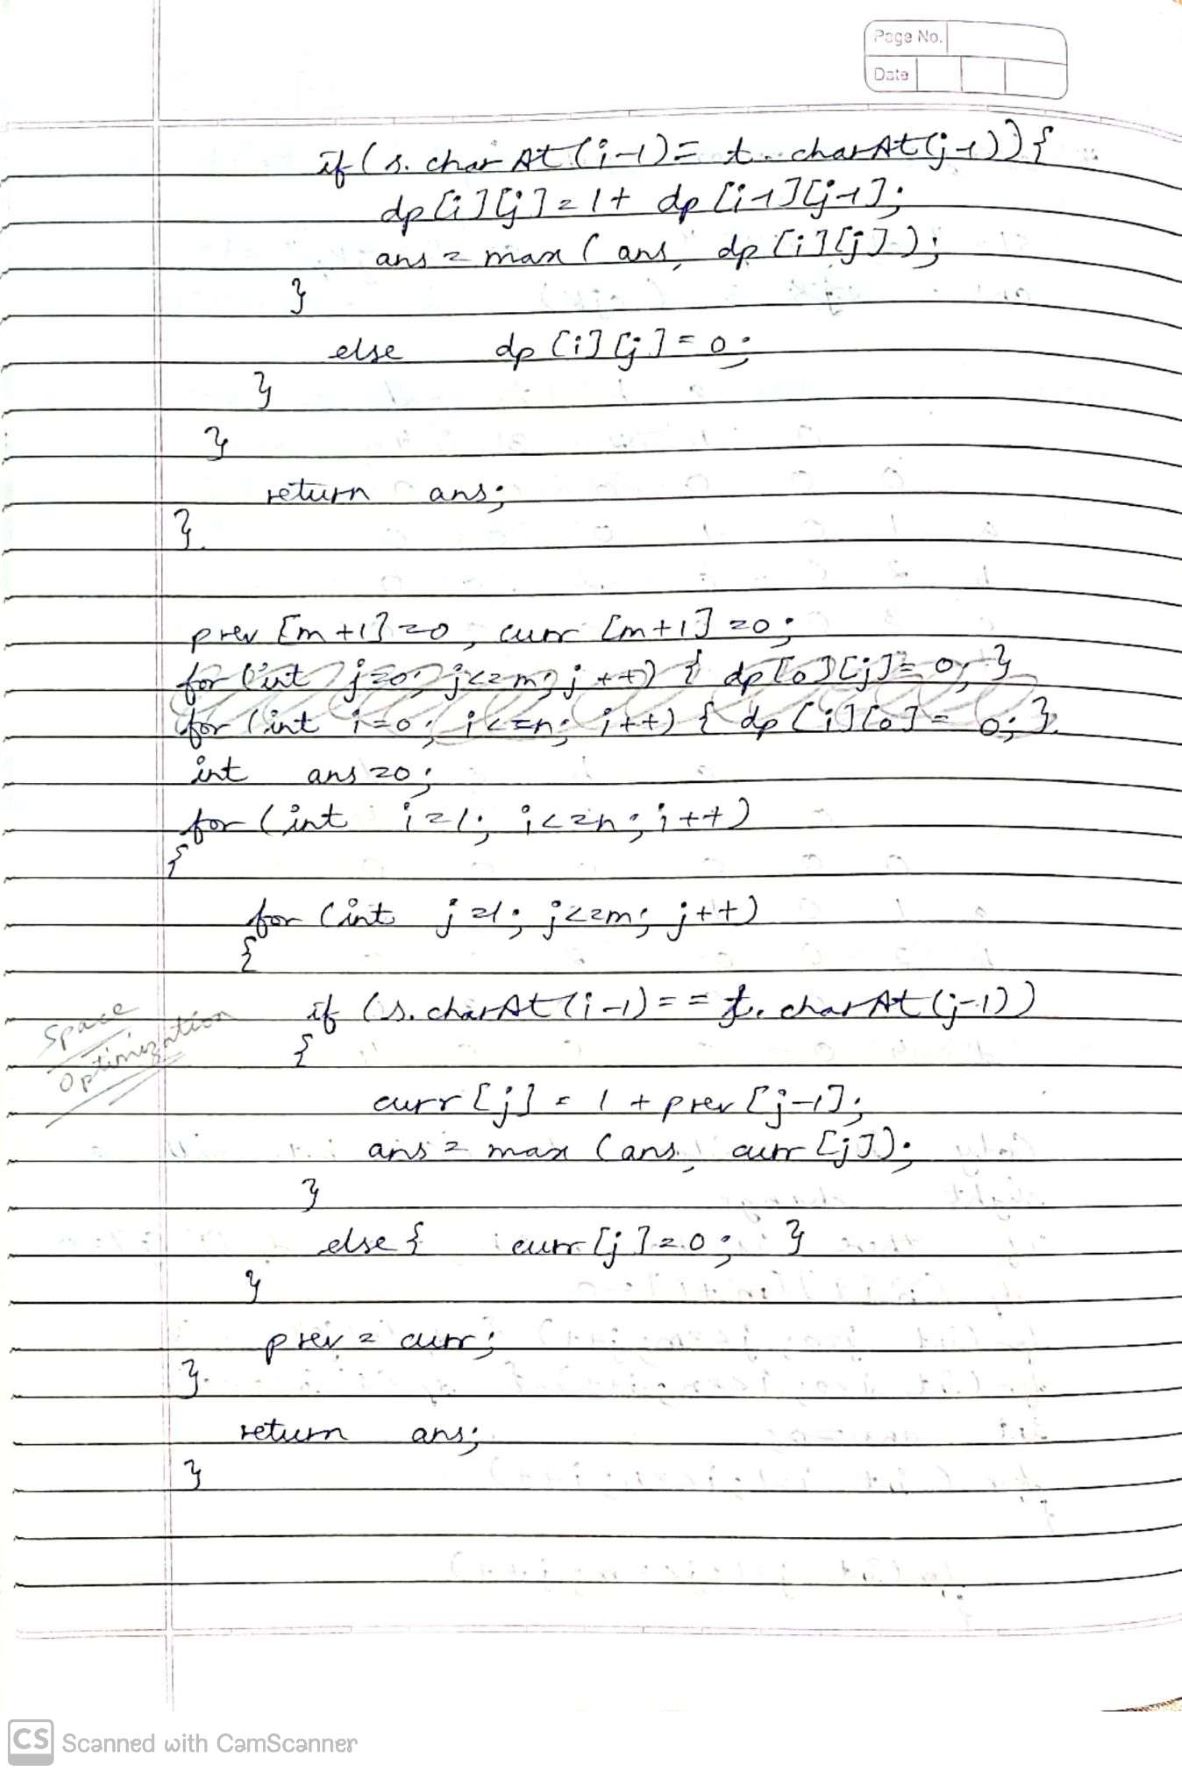 Page No.
Date
if (s. charAt (i-1) = t. charAt (j-1)) {
dp [i] [j] = 1 + dp [i-1] [j-1];
ans = max ( ans, dp [i] [j] );
}
else dp [i] [j] = 0;
}
}
return ans;
}
prev [m+1] = 0, curr [m+1] = 0;
for (int j=0; j<=m; j++) { dp [0] [j] = 0; }
for (int i=0; i<=n; i++) { dp [i] [0] = 0; }
int ans = 0;
for (int i=1; i<=n; i++)
{
for (int j=1; j<=m; j++)
{
Space
Optimization
if (s. charAt (i-1) == t. charAt (j-1))
{
curr [j] = 1 + prev [j-1];
ans = max (ans, curr [j]);
}
else { curr [j] = 0; }
}
prev = curr;
}
return ans;
}
CS Scanned with CamScanner